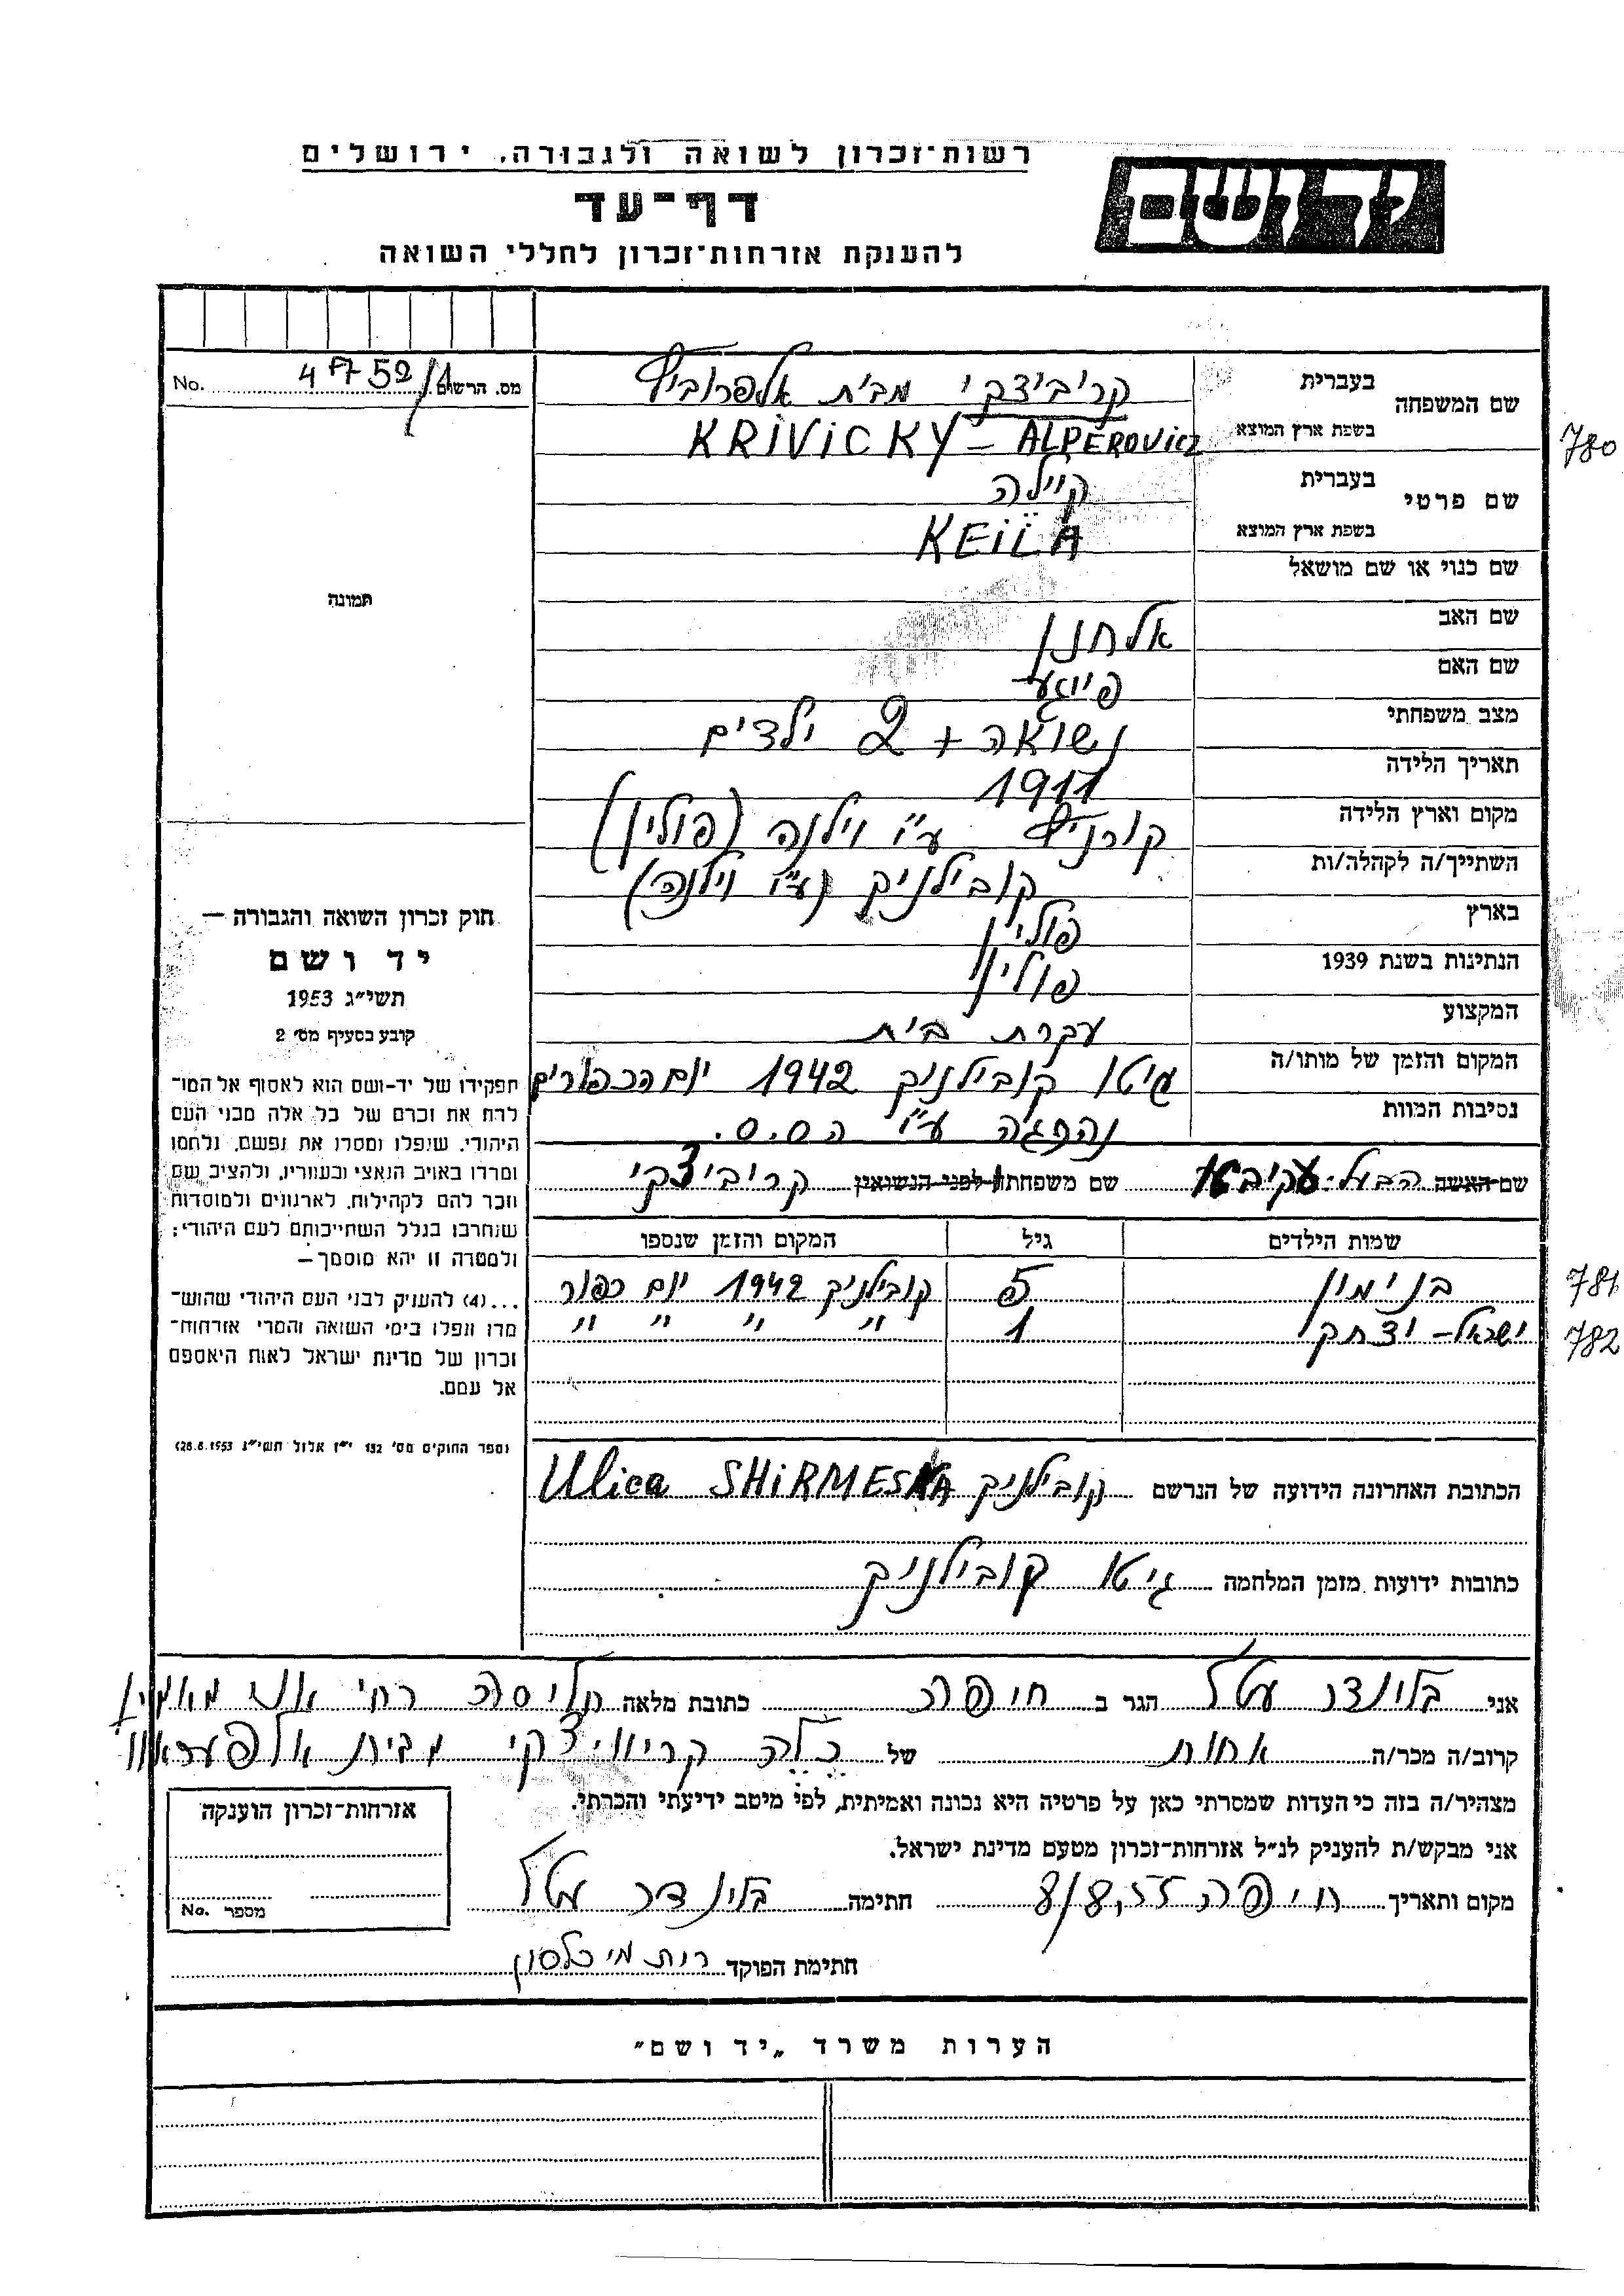 רשות־זכרון לשואה ולגבורה, ירושלים
יד ושם
דף־עד
להענקת אזרחות־זכרון לחללי השואה
מס. הרשום 4752/1 No.
שם המשפחה
בעברית קריביצקי מבית אלפרוביץ
בשפת ארץ המוצא KRIVICKY – ALPEROVICZ
780
שם פרטי
בעברית קיילה
בשפת ארץ המוצא KEILA
שם כנוי או שם מושאל
שם האב אלחנן
שם האם פייגע
מצב משפחתי נשואה + 2 ילדים
תאריך הלידה 1911
מקום וארץ הלידה קורניץ ע"י וילנה (פולין)
השתייך/ה לקהלה/ות קובילניק (ע"י וילנה)
בארץ פולין
הנתינות בשנת 1939 פולין
המקצוע עקרת בית
המקום והזמן של מותו/ה גיטו קובילניק 1942 יום הכפורים
נסיבות המוות נהרגה ע"י ה.ס.ס.
שם האשה הבעל: עקיבא שם משפחתו לפני הנשואין קריביצקי
שמות הילדים גיל המקום והזמן שנספו
בנימין 5 קובילניק 1942 יום כפור
781
ישראל-יצחק 1 " " " "
782
הכתובת האחרונה הידועה של הנרשם קובילניק Ulica SHIRMESKA
כתובות ידועות מזמן המלחמה גיטו קובילניק
תמונה
חוק זכרון השואה והגבורה —
יד ושם
תשי"ג 1953
קובע בסעיף מס' 2
תפקידו של יד-ושם הוא לאסוף אל המו־
לדת את זכרם של כל אלה מבני העם
היהודי, שנפלו ומסרו את נפשם, נלחמו
ומרדו באויב הנאצי ובעוזריו, ולהציב שם
וזכר להם לקהילות, לארגונים ולמוסדות
שנחרבו בגלל השתייכותם לעם היהודי;
ולמטרה זו יהא מוסמך —
...(4) להעניק לבני העם היהודי שהוש־
מדו ונפלו בימי השואה והמרי אזרחות־
זכרון של מדינת ישראל לאות היאספם
אל עמם.
(ספר החוקים מס' 132 י"ז אלול תשי"ג 28.8.1953)
אני בלינדר עטל הגר ב חיפה כתובת מלאה חליסה רח' אני מאמין
קרוב/ה מכר/ה אחות של כלה קריוויצקי מבית
מצהיר/ה בזה כי העדות שמסרתי כאן על פרטיה היא נכונה ואמיתית, לפי מיטב ידיעתי והכרתי.
אני מבקש/ת להעניק לנ"ל אזרחות־זכרון מטעם מדינת ישראל.
מקום ותאריך חיפה 8/8,55 חתימה בלינדר עטל
חתימת הפוקד רות מיכלסון
אזרחות־זכרון הוענקה
מספר No.
הערות משרד „יד ושם"